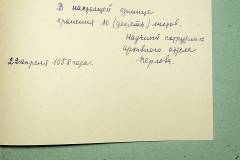 В настоящей единице
хранения 10 (десять) листов.
Научный сотрудник
архивного отдела
22 апреля 1958 года.